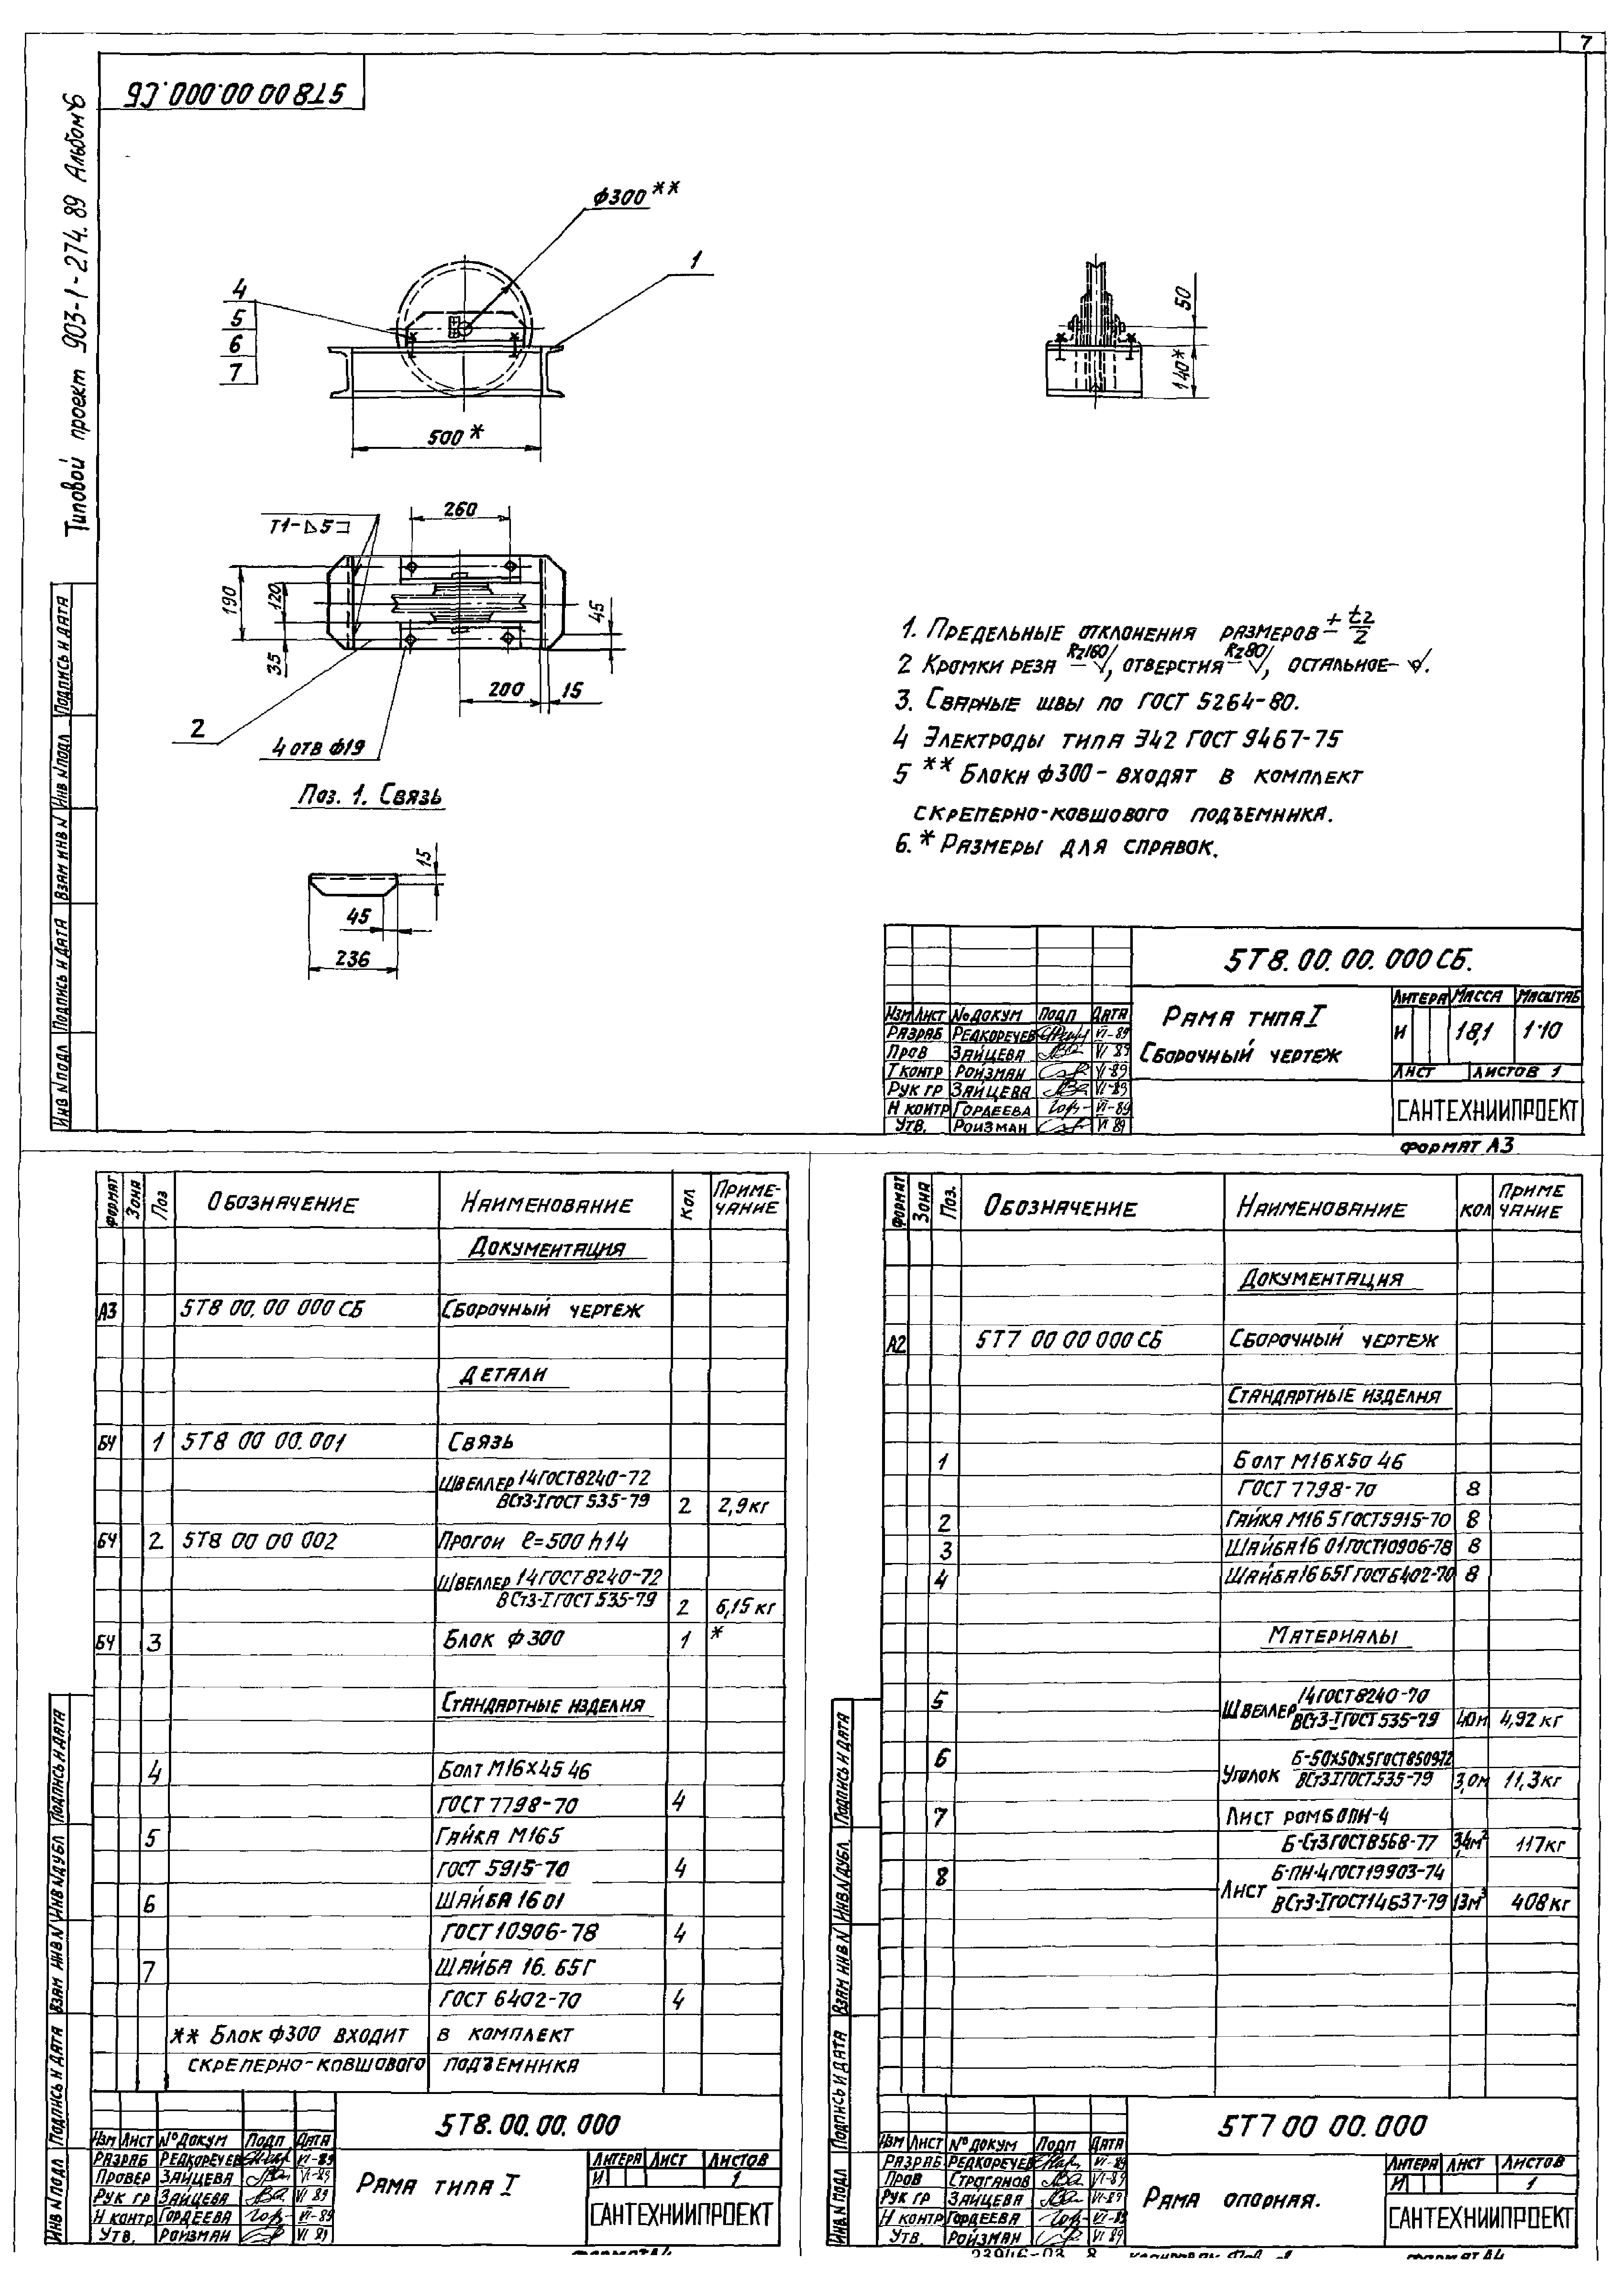 7
5Т8 00 00.000.СБ
Типовой проект 903-1-274.89 Альбом 6
ф300**
1
4
5
6
7
500*
50
140*
Т1-⊿5⊐
260
190
120
35
45
200
15
2
4 отв ф19
Поз. 1. Связь
15
45
236
1. Предельные отклонения размеров ± t2/2
2 Кромки реза – Rz160, отверстия – Rz80, остальное –
3. Сварные швы по ГОСТ 5264-80.
4 Электроды типа Э42 ГОСТ 9467-75
5 ** Блоки ф300 - входят в комплект
скреперно-ковшового подъемника.
6. * Размеры для справок.
5Т8.00.00.000СБ.
Рама типа I
Сборочный чертеж
Литера Масса Масштаб
И 18,1 1·10
Лист Листов 1
САНТЕХНИИПРОЕКТ
Изм Лист № докум Подп Дата
Разраб Редкоречев VI-89
Пров Зайцева VI 89
Т контр Ройзман VI-89
Рук гр Зайцева VI-89
Н контр Гордеева VI-89
Утв. Ройзман VI 89
Формат А3
Инв N подл Подпись и дата Взам инв N Инв N подл Подпись и дата
Формат Зона Поз Обозначение Наименование Кол Примечание
Документация
А3 5Т8 00.00 000 СБ Сборочный чертеж
Детали
БЧ 1 5Т8 00 00.001 Связь
Швеллер 14 ГОСТ 8240-72
ВСт3-I ГОСТ 535-79 2 2,9 кг
БЧ 2 5Т8 00 00 002 Прогон ℓ=500 h14
Швеллер 14 ГОСТ 8240-72
ВСт3-I ГОСТ 535-79 2 6,15 кг
БЧ 3 Блок ф300 1 *
Стандартные изделия
4 Болт М16х45 46
ГОСТ 7798-70 4
5 Гайка М16 5
ГОСТ 5915-70 4
6 Шайба 16 01
ГОСТ 10906-78 4
7 Шайба 16. 65Г
ГОСТ 6402-70 4
** Блок ф300 входит в комплект
скреперно-ковшового подъемника
5Т8.00.00.000
Рама типа I
Изм Лист № докум Подп Дата
Разраб Редкоречев VI-89
Провер Зайцева VI-89
Рук гр Зайцева VI 89
Н контр Гордеева VI-89
Утв. Ройзман VI 89
Литера Лист Листов
И 1
САНТЕХНИИПРОЕКТ
Формат А4
Инв N подл Подпись и дата Взам инв N Инв N дубл Подпись и дата
Формат Зона Поз. Обозначение Наименование Кол Примечание
Документация
А2 5Т7 00 00 000 СБ Сборочный чертеж
Стандартные изделия
1 Болт М16х50 46
ГОСТ 7798-70 8
2 Гайка М16 5 ГОСТ 5915-70 8
3 Шайба 16 01 ГОСТ 10906-78 8
4 Шайба 16 65Г ГОСТ 6402-70 8
Материалы
5 Швеллер 14 ГОСТ 8240-70
ВСт3-I ГОСТ 535-79 40м 4,92 кг
6 Уголок Б-50х50х5 ГОСТ 8509-72
ВСт3 I ГОСТ 535-79 3,0м 11,3 кг
7 Лист ромб ОПН-4
Б-Ст3 ГОСТ 8568-77 3,4м² 117 кг
8 Лист Б-ПН-4 ГОСТ 19903-74
ВСт3-I ГОСТ 14637-79 13м³ 408 кг
5Т7 00 00.000
Рама опорная.
Изм Лист № докум Подп Дата
Разраб Редкоречев VI-89
Пров Строганов VI-89
Рук гр Зайцева VI-89
Н контр Гордеева VI-89
Утв. Ройзман VI 89
Литера Лист Листов
И 1
САНТЕХНИИПРОЕКТ
23946-03 8
Формат А4
Инв N подл Подпись и дата Взам инв N Инв N дубл. Подпись и дата